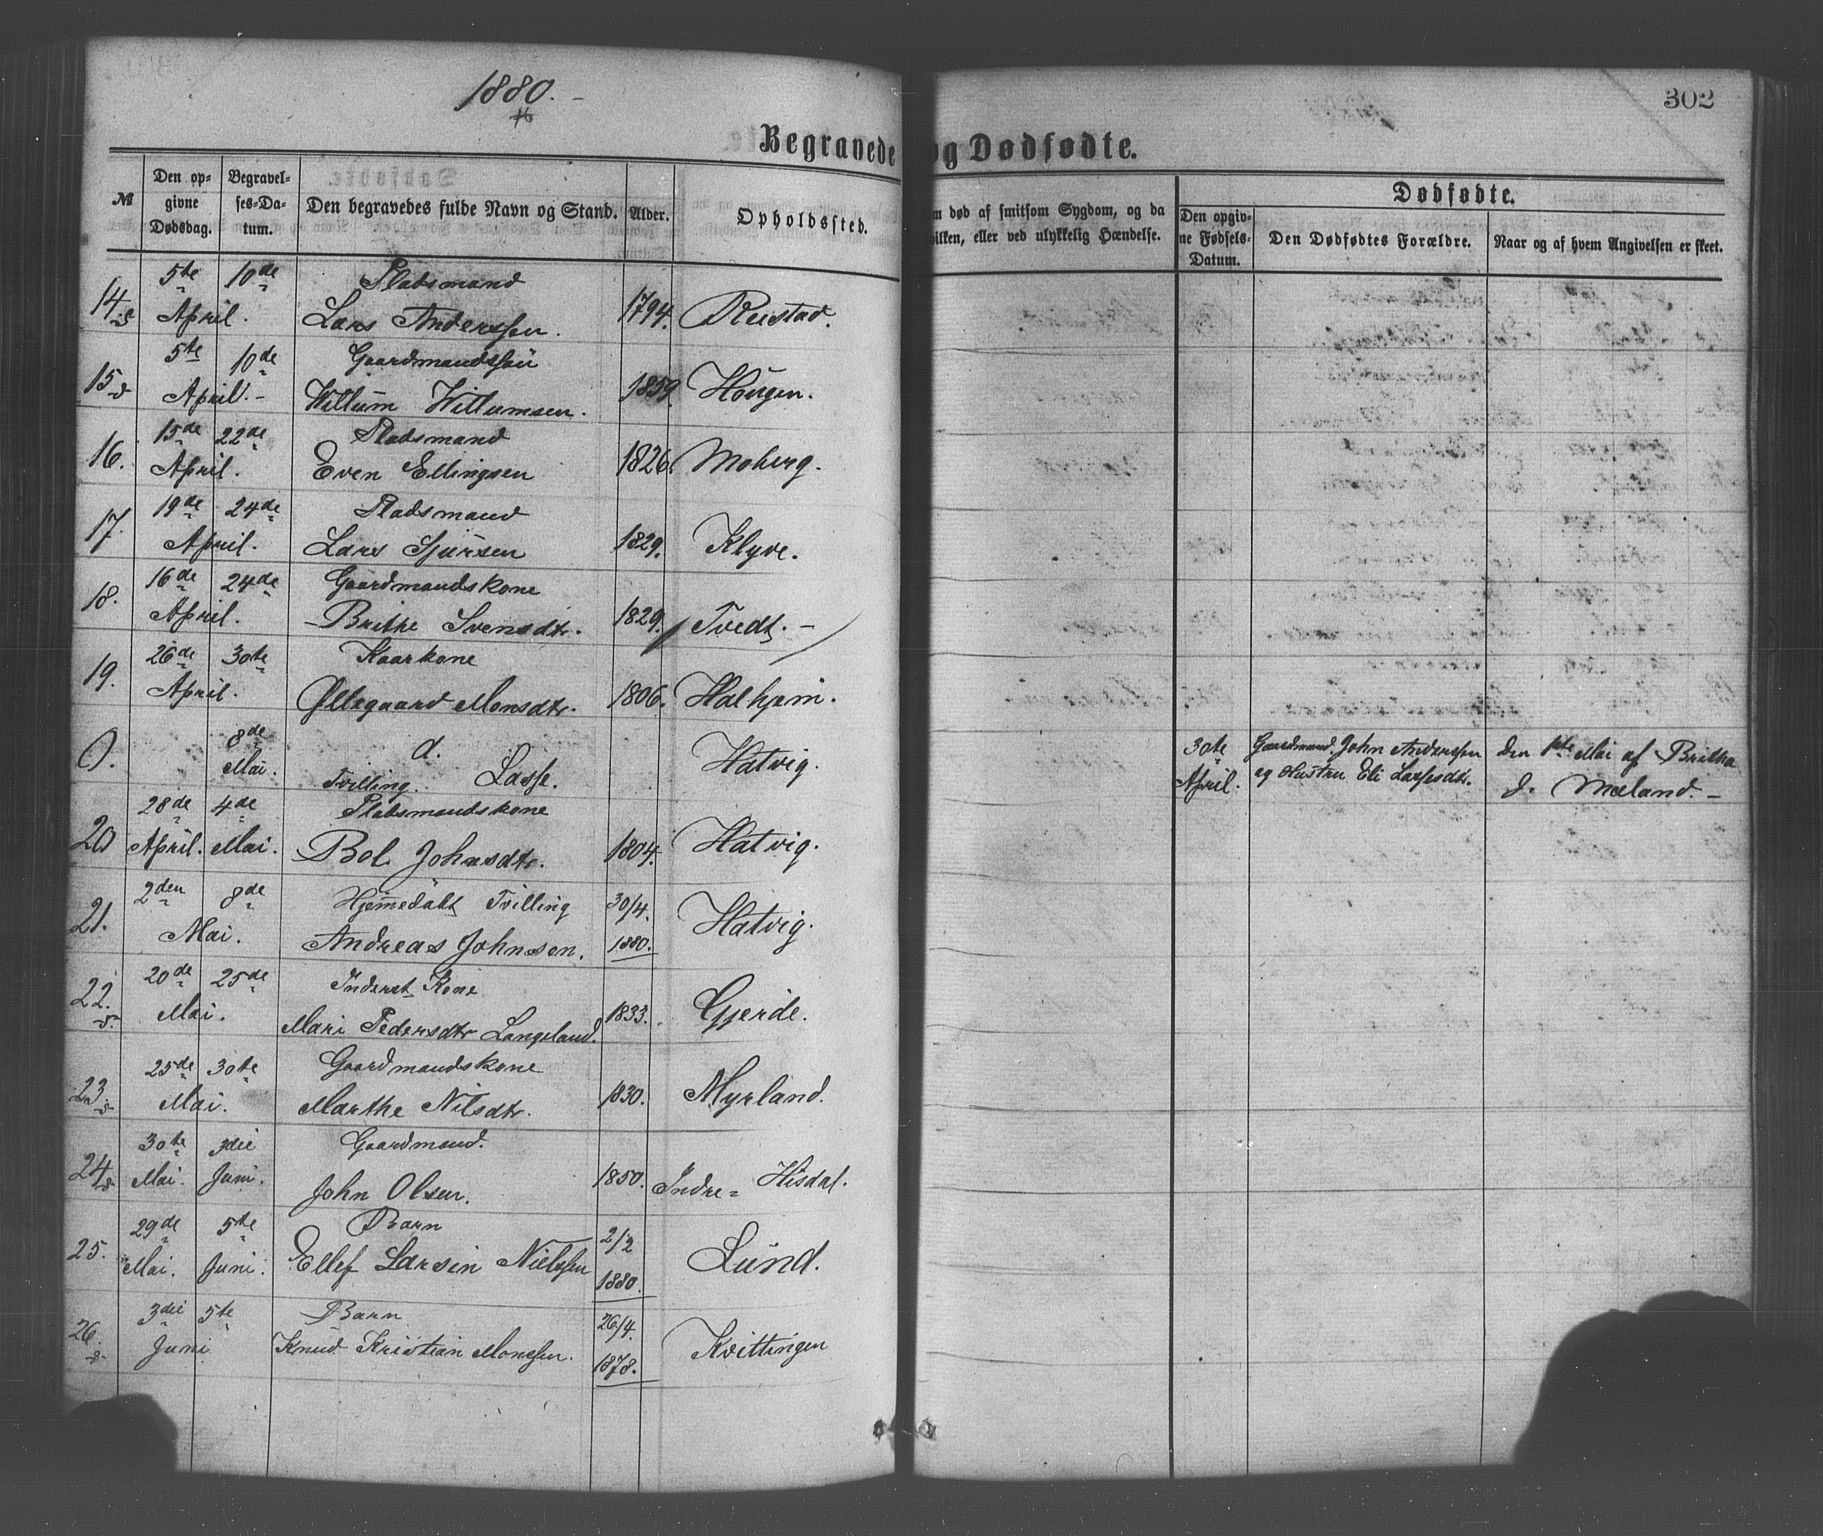 1880.
302
Begravede og Dødfødte.
№
Den opgivne Dødsdag.
Begravelses-Datum.
Den begravedes fulde Navn og Stand.
Alder.
Opholdssted.
m død af smitsom Sygdom, og da
vilken, eller ved ulykkelig Hændelse.
Dødfødte.
Den opgivne Fødsels-Datum.
Den Dødfødtes Forældre.
Naar og af hvem Angivelsen er skeet.
5te 10de Pladsmand
14. April. Lars Anderssen. 1794. Reistad.
5te 10de Gaardmandssøn
15 April.- Willum Willumsen. 1859. Hougen.
15de 22de Pladsmand
16. April. Even Ellingsen 1826. Moberg.
19de 24de Pladsmand
17. April. Lars Sjursen 1829. Klyve.
16de 24de Gaardmandskone
18. April. Brithe Svensdtr. 1829. Tvedt.-
26de 30te Kaarkone
19. April. Øllegaard Monsdtr. 1806. Halhjem.
0. 8de Mai. d. Tvilling. Lasse. Hatvig. 30te April. Gaardmand John Anderssen og Hustru Eli Larsesdtr. den 1ste Mai af Britha J. Mæland.-
28de 4de Pladsmandskone
20 April. Mai. Bol Johnsdtr. 1804. Hatvig.
2den 8de Hjemmedøbt Tvilling 30/4.
21. Mai. Andreas Johnsen. 1880. Hatvig.
20de 25de Inderst Kone
22. Mai. Mari Pedersdtr Langeland. 1833. Gjerde.
25de 30te Gaardmandskone
23. Mai. Marthe Nilsdtr. 1830. Myrland.
30te 3die Gaardmand.
24. Mai. Juni. John Olsen. 1850. Indre= Hisdal.
29de 5te Barn 2/2
25. Mai. Juni. Ellef Larsin Nielssen 1880. Lund.
3die 5te Barn 26/4.
26. Juni Knud Kristian Monssen. 1878. Kvittingen